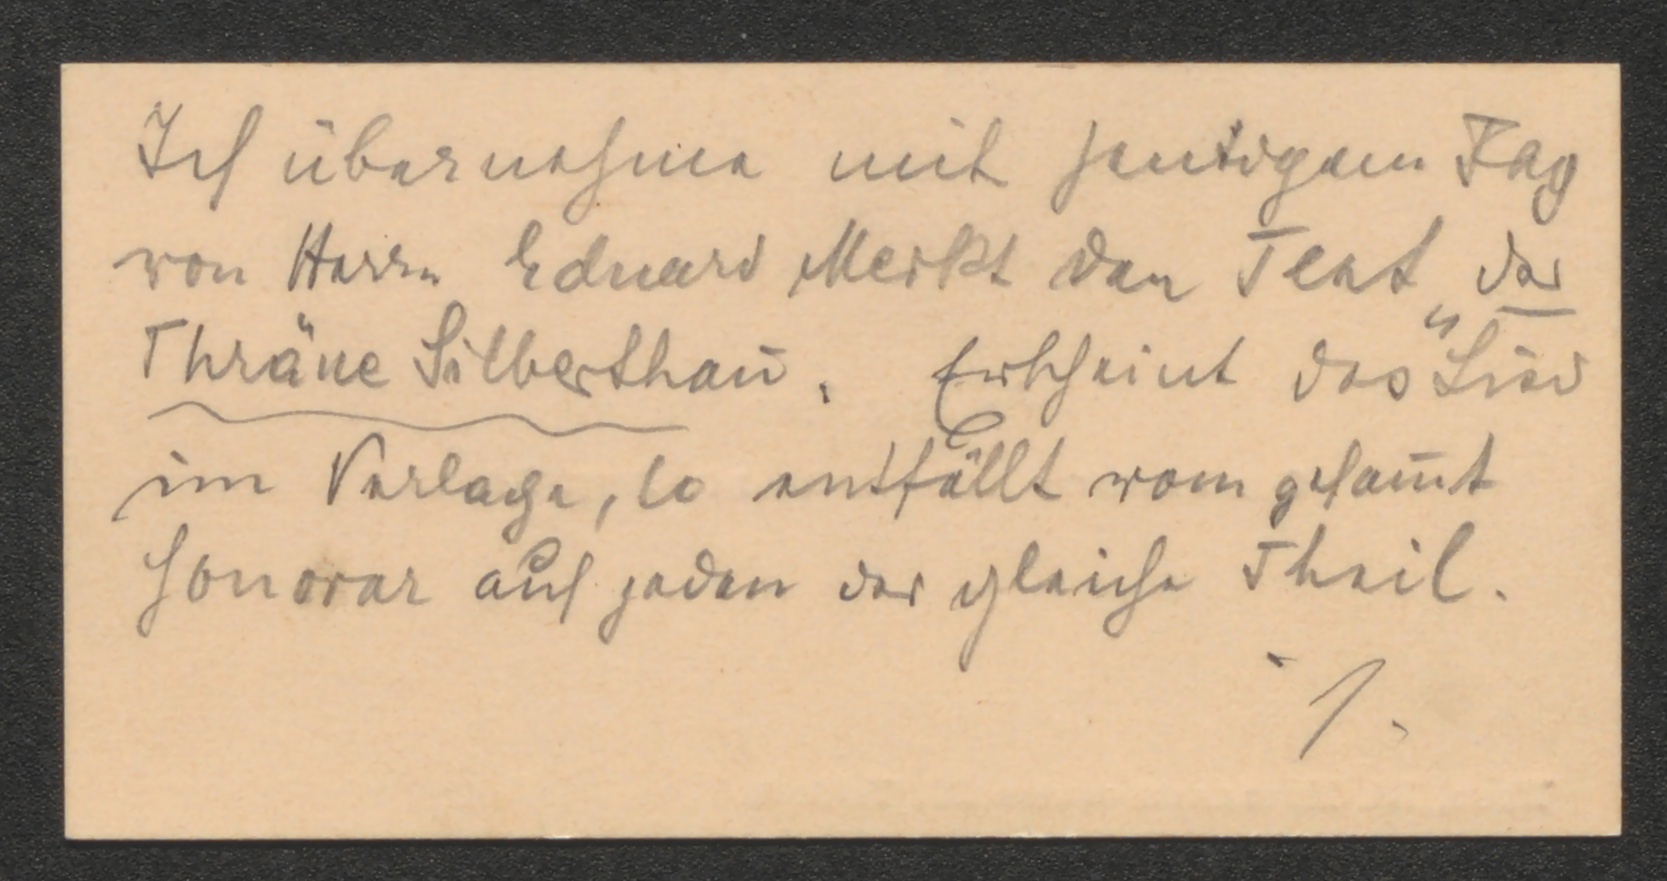 Ich übernehme mit heutigem Tag
von Herrn Eduard Merkt den Text „der
Thräne Silberthau“. Erscheint das Lied
im Verlage, so entfällt vom gesam̅t
Honorar auf jeden der gleiche Theil.